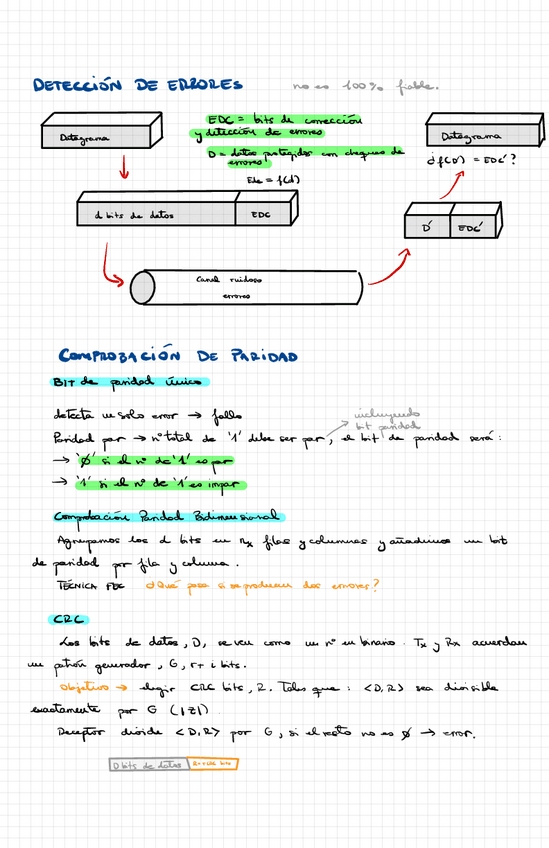 DETECCIÓN DE ERRORES no es 100% fiable.
Datagrama
EDC = bits de corrección
y detección de errores
D = datos protegidos con chequeo de
errores
Datagrama
Edc = f(d)
¿f(D') = EDC'?
d bits de datos EDC
D' EDC'
Canal ruidoso
errores
COMPROBACIÓN DE PARIDAD
BIT de paridad único
detecta un solo error → fallo
incluyendo
bit paridad
Paridad par → nº total de '1' debe ser par, el bit de paridad será:
→ '0' si el nº de '1' es par
→ '1' si el nº de '1' es impar
Comprobación Paridad Bidimensional
Agrupamos los d bits en filas y columnas y añadimos un bit
de paridad por fila y columna.
TÉCNICA FEC ¿Qué pasa si se producen dos errores?
CRC
Los bits de datos, D, se ven como un nº en binario. Tx y Rx acuerdan
un patrón generador, G, r+1 bits.
Objetivo → elegir CRC bits, R. Tales que: <D,R> sea divisible
exactamente por G
Receptor divide <D,R> por G, si el resto no es 0 → error.
D bits de datos